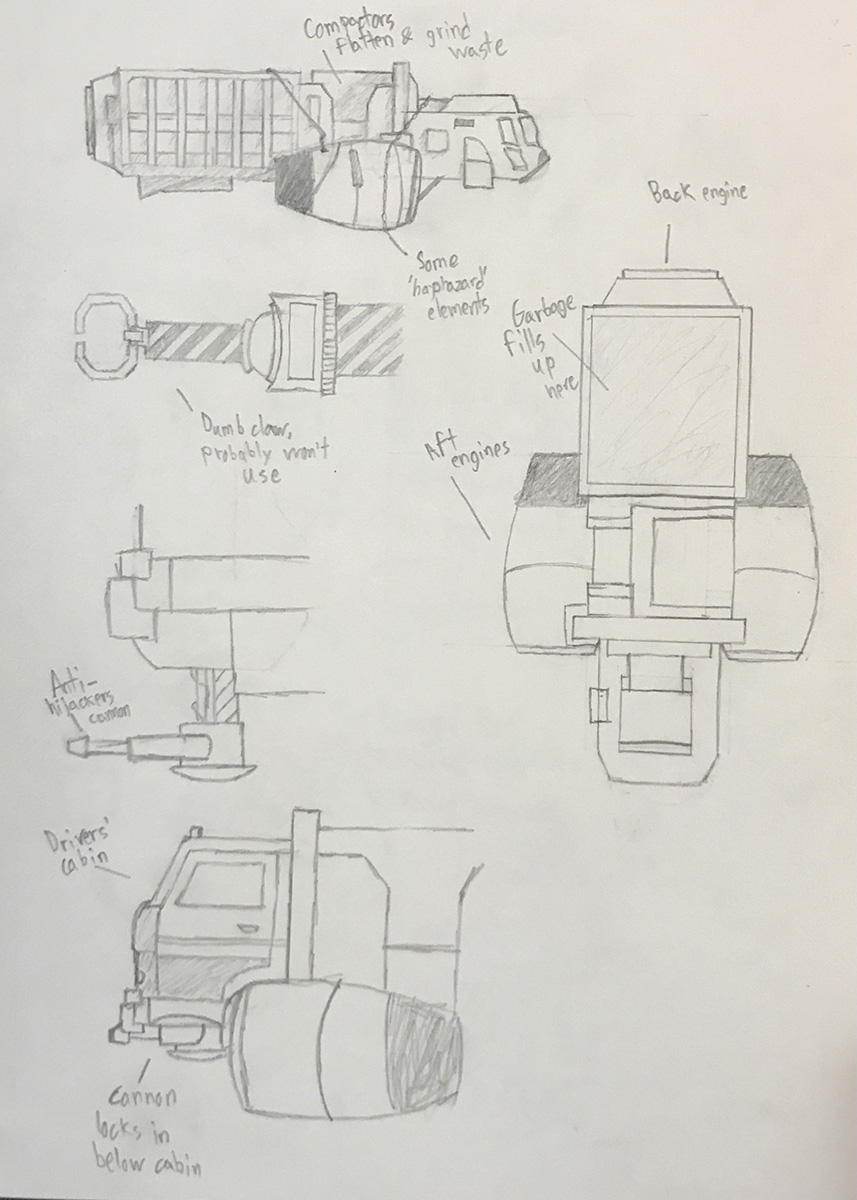 Compactors
flatten & grind
waste
Back engine
Some
'haphazard'
elements
Garbage
fills
up
here
Dumb claw,
probably won't
use
Aft
engines
Anti-
hijackers
cannon
Drivers'
cabin
Cannon
locks in
below cabin